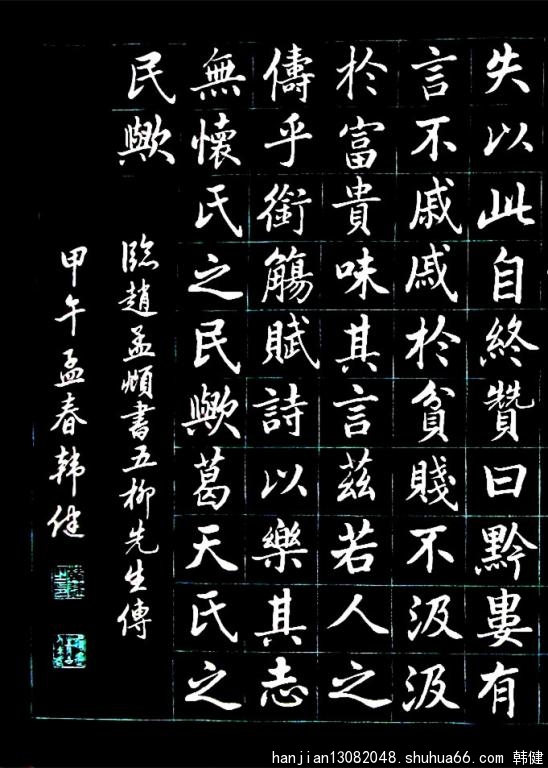 失以此自終贊曰黔婁有
言不戚戚於貧賤不汲汲
於富貴味其言茲若人之
儔乎銜觴賦詩以樂其志
無懷氏之民歟葛天氏之
民歟
臨趙孟頫書五柳先生傳
甲午孟春韩健
hanjian13082048.shuhua66.com 韩健